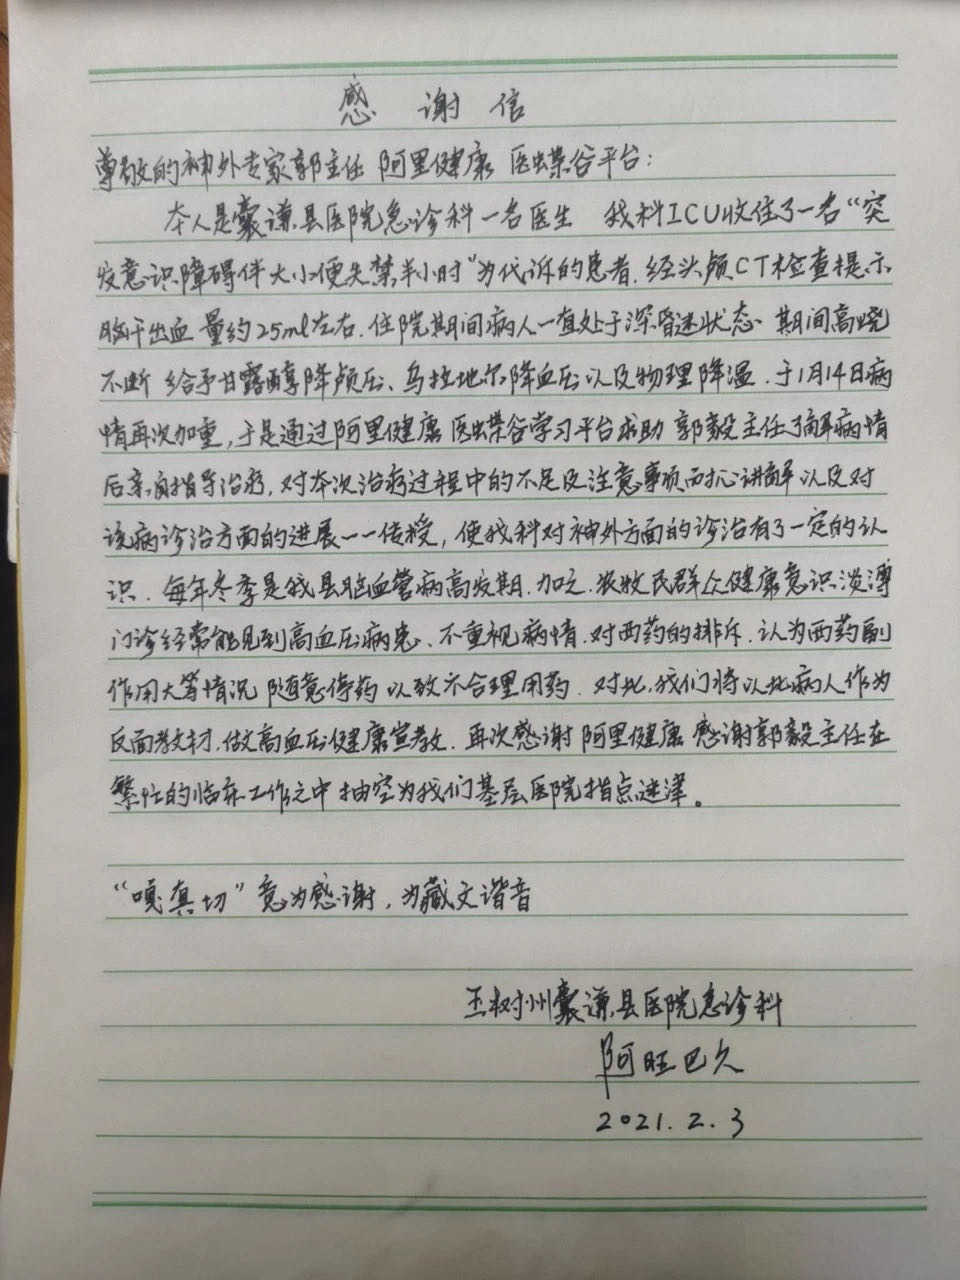 感谢信
尊敬的神外专家郭主任 阿里健康 医蝶谷平台：
本人是囊谦县医院急诊科一名医生 我科ICU收住了一名“突
发意识障碍伴大小便失禁半小时”为代诉的患者.经头颅CT检查提示
脑干出血 量约25ml左右.住院期间病人一直处于深昏迷状态、期间高烧
不断 给予甘露醇降颅压、乌拉地尔降血压以及物理降温.于1月14日病
情再次加重,于是通过阿里健康 医蝶谷学习平台求助 郭毅主任了解病情
后亲自指导治疗,对本次治疗过程中的不足及注意事项耐心讲解以及对
该病诊治方面的进展一一传授,使我科对神外方面的诊治有了一定的认
识.每年冬季是我县脑血管病高发期.加之.农牧民群众健康意识淡薄
门诊经常能见到高血压病患、不重视病情.对西药的排斥.认为西药副
作用大等情况 随意停药 以致不合理用药.对此,我们将以此病人作为
反面教材.做高血压健康宣教.再次感谢 阿里健康 感谢郭毅主任在
繁忙的临床工作之中 抽空为我们基层医院指点迷津。
“嘎真切”意为感谢,为藏文谐音
玉树州囊谦县医院急诊科
阿旺巴久
2021.2.3